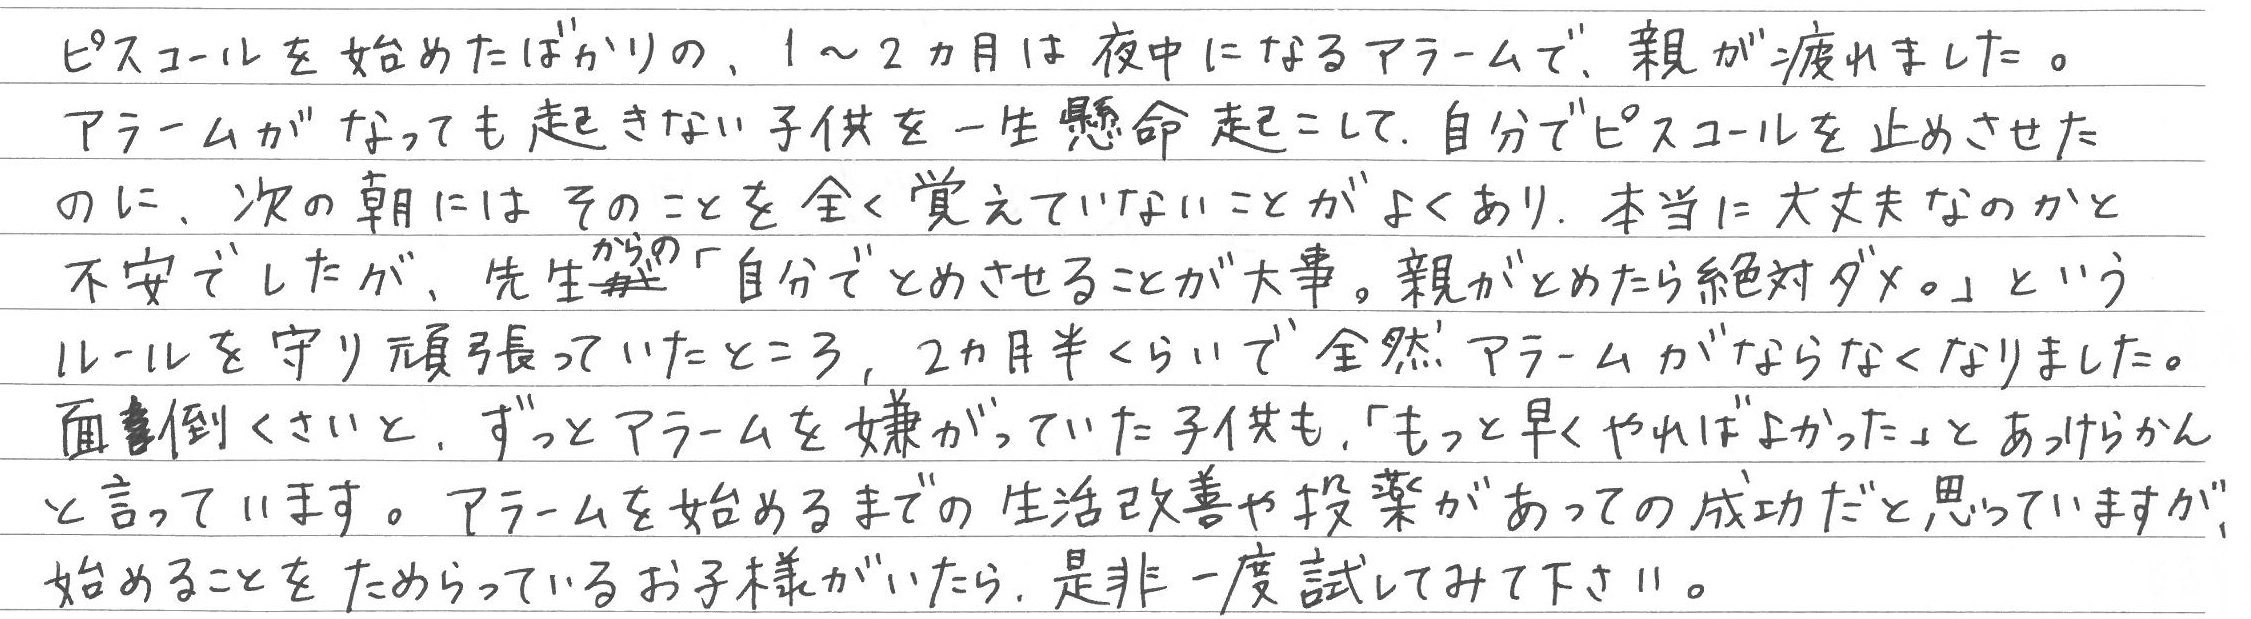 ピスコールを始めたばかりの、1〜2ヵ月は夜中になるアラームで、親が疲れました。
アラームがなっても起きない子供を一生懸命起こして、自分でピスコールを止めさせた
のに、次の朝にはそのことを全く覚えていないことがよくあり、本当に大丈夫なのかと
不安でしたが、先生からの「自分でとめさせることが大事。親がとめたら絶対ダメ。」という
ルールを守り頑張っていたところ、2ヵ月半くらいで全然アラームがならなくなりました。
面倒くさいと、ずっとアラームを嫌がっていた子供も、「もっと早くやればよかった」とあっけらかん
と言っています。アラームを始めるまでの生活改善や投薬があっての成功だと思っていますが、
始めることをためらっているお子様がいたら、是非一度試してみて下さい。